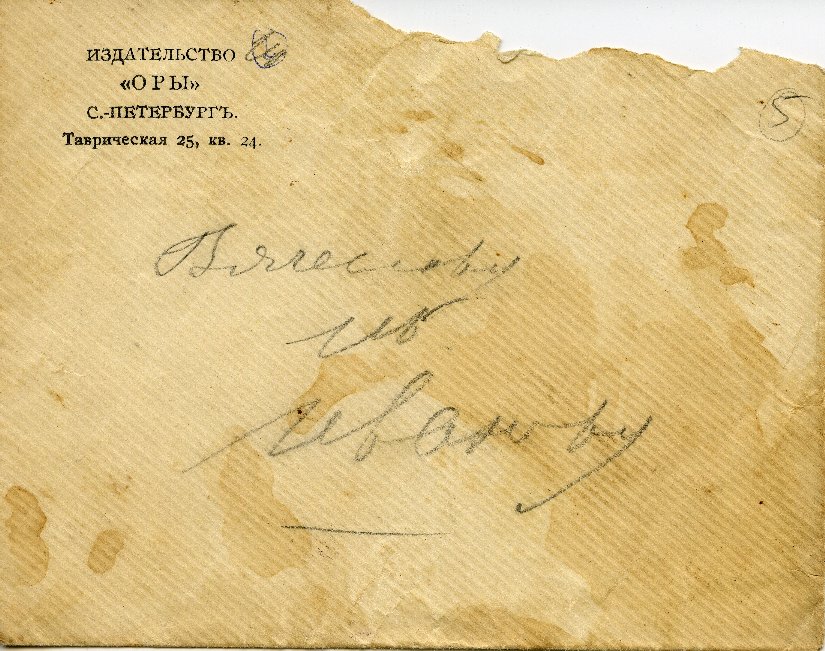 ИЗДАТЕЛЬСТВО
«ОРЫ»
С.-ПЕТЕРБУРГЪ.
Таврическая 25, кв. 24.
5
Вячеславу
Ив
Иванову